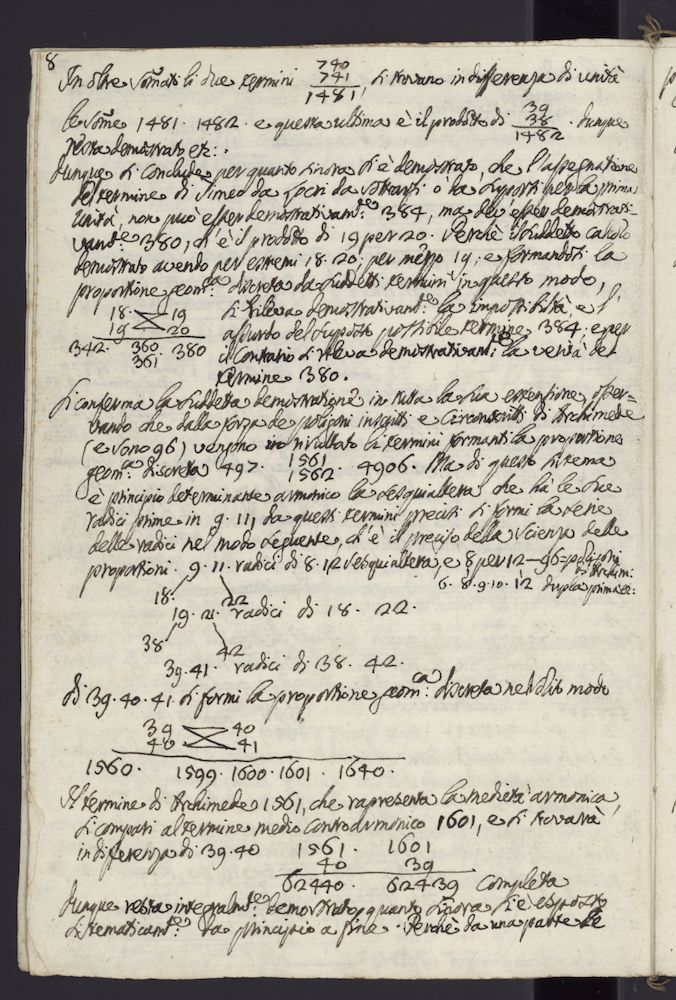 8
In oltre Som̃ati li due termini 740
741
1481, si trovano in differenza di unità
le som̃e 1481. 1482. e questa ultima è il prodotto di 39
38
1482. Dunque
resta demostrato etc:.
Dunque si conclude per quanto sinora si è demostrato, che l'assegnatione
del termine di Simeo da
unità, non può esser demostrativam.te 384, ma dev'esser demostrati-
vam.te 380, ch'è il prodotto di 19 per 20. Perchè il suddetto calcolo
demostrato avendo per estremi 18. 20; per mezzo 19; e formandosi la
proportione geom.ca discreta da suddetti termini in questo modo,
18. 19
19 20
342. 360 380
361.
si rileva demostrativam.te la impossibilità, e l'
assurdo del supposto possibile termine 384; e per
il contrario si rileva demostrativam.te la verità del
termine 380.
Si conferma la suddetta demostratione in tutta la sua estensione, osser-
vando che dalla forza de poligoni inscritti e circonscritti di Archimede
(e sono 96) vengono in risultato li termini formanti la proportione
geom.ca discreta 497. 1561
1562. 4906. Ma di questo sistema
è principio determinante armonico la sesquialtera che hà le due
radici prime in 9. 11, da questi termini precisi si formi la serie
delle radici nel modo seguente, ch'è il preciso della scienza delle
proportioni. 9. 11. radici di 8. 12 sesquialtera, e 8 per 12 — 96 = poligoni
di Archim:
6. 8. 9. 10. 12 dupla prima etc:
18. 22
19. 21. radici di 18. 22.
38 42
39. 41. radici di 38. 42.
Di 39. 40. 41. si formi la proportione geom.ca: discreta nel solito modo
39 40
40 41
1560. 1599. 1600. 1601. 1640.
Il termine di Archimede 1561, che rapresenta la medietà armonica,
si compari al termine medio contrarmonico 1601, e si trovarà
in differenza di 39. 40 1561. 1601
40 39
62440. 62439 Completa
Dunque resta integralm.te demostrato quanto sinora si è esposto
sistematicam.te: da principio a fine. Perchè da una parte le